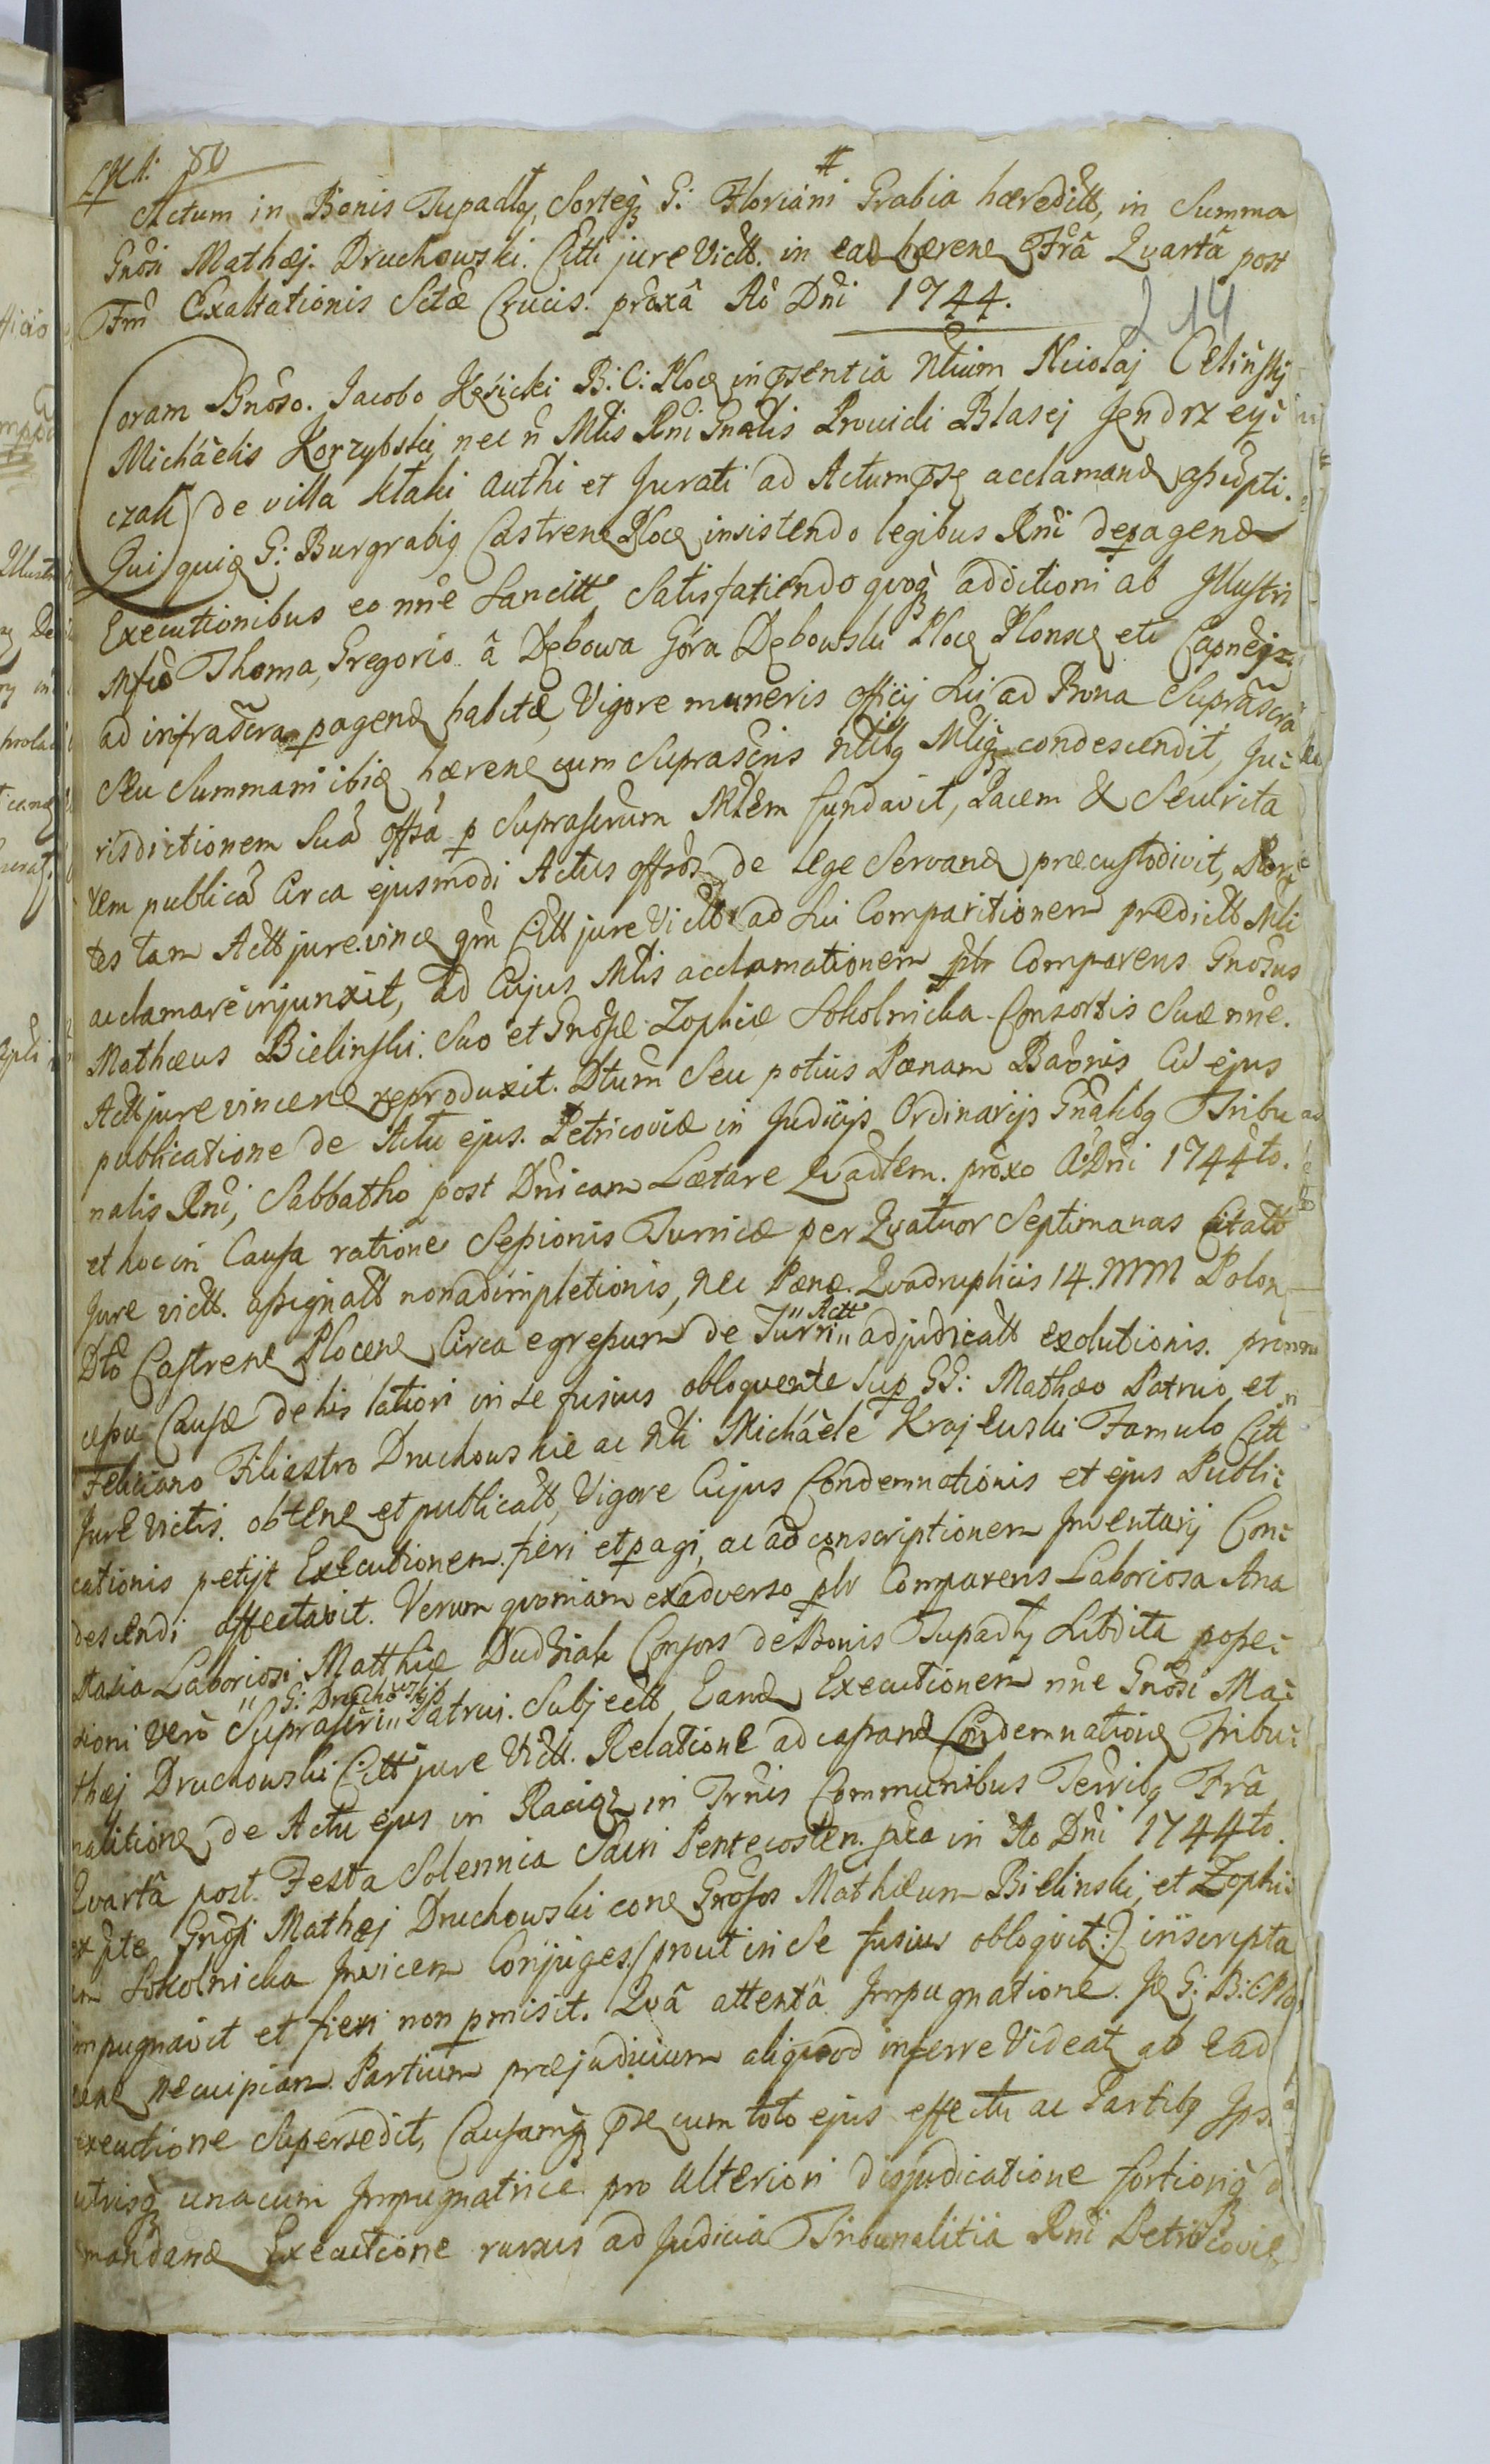 80
Actum in Bonis Tupadły, Sorteq G: Floriani Grabia hæreditt, in Summa
Gnosi Mathæj Druchowski. Citti jure Victt. in ead hæren Fra Quarta post
Fm Exaltationis Sctæ Crucis proxa Ao Dni 1744.
214
Coram Gnoso. Jacobo Kęsicki B: C: Ploc in psentia Nlium Nicolaj Celinskj
Michaelis Korzybski, nec n Mlis Rni Gnalis Prouidi Blasej Jendrzeyi
czak de villa Ktaki authi et Jurati ad Actum pse acclamand assupti.
Qui quiq G: Burgrabiq Castren Ploc insistendo legibus Rni de pagend
Executionibus eo nne Sancitt Satisfatiendo quoq additioni ab Illustri
Mfco Thoma, Gregorio a Dębowa Góra Dębowski Ploc Plonsc etc Capneq
ad infrascra pagend habitæ, Vigore muneris officij Sui ad Bona Suprascra
Seu Summam ibiq hæren cum Suprascris nlibq Mliq condescendit, Ju-
risdictionem Sua offsa p Suprascrum Mlem fundavit, Pacem & Securita
tem publica Circa ejusmodi Actus offsos de lege Servand præcustodivit, Par
tes tam Actt jure vinc qm Citt jure Victt ad Sui Comparitionem prædictt Mli
acclamare injunxit, ad Cujus Mlis acclamationem plr Comparens Gnosus
Mathæus Bielinski. Suo et Gnosæ Zophiæ Sokolnicka Consortis Suæ nne.
Actt jure vincen reproduxit. Dtum Seu potius Pœnam Baonis Cu ejus
publicatione de Actu ejus. Petricoviæ in Judicijs Ordinarijs Gnalibq Tribu
nalis Rni, Sabbatho post Dnicam Lætare Quadlem. proxo A: Dni 1744to.
et hoc in Causa ratione Sessionis Turricæ per Quatuor Septimanas Citatt
Jure victt. assignatt non adimpletionis, nec Pænæ Quadruplicis 14. MM Polon
Dto Castren Plocen Circa egressum de Turri "Actt" adjudicatt exolutionis. primm
cessu Causæ de his latiori in se fusius obloquente Sup GG: Mathæo Patruo, et
Feliciano Filiastro Druchowskie ac Nli Michaele Krajewski Famulo Citt
Jure Victis. obten et publicatt, Vigore Cujus Condemnationis et ejus Publi-
cationis petijt Executionem fieri et pagi, ac ad conscriptionem Inventarij Con-
descendi affectavit. Verum quoniam ex adverso plr Comparens Laboriosa Ana
stasia Laboriosi Matthiæ Dudziak Consors de Bonis Tupadły Subdita posse-
sioni vero Suprascri "G: Druchowskis" Patrui. Subjectt, Eand Executionem nne Gnosi Ma-
thæj Druchowski Citt jure Victt. Relatione ad capand Condemnatione Tribu-
nalition de Actu ejus in Raciąz in Trnis Communibus Terribq Fra
Quarta post Festa Solennia Sacri Pentecosten. pca in Ao Dni 1744to.
ex pte Gnosi Mathæj Druchowski con Gnosos Mathæum Bielinski, et Zophi-
am Sokolnicka Invicem Conjuges (prout in Se fusius obloquit:) inscripta
impugnavit et fieri non pmisit. Qua attenta Impugnatione. Je G: B: C Plo
cen ne cuipiam Partium præjudicium aliquod inferre Videat ab Ead
executione Supersedit, Causamq pse cum toto ejus effectu ac Partibq Ips
utrisq una cum Impugnatrice pro Ulteriori disjudicatione fortioriq d
mandand Executione rursus ad Judicia Tribunalitia Rni Petricovie